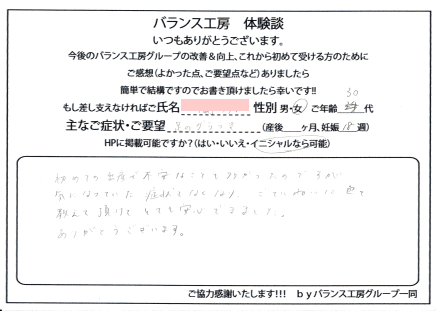 バランス工房 体験談
いつもありがとうございます。
今後のバランス工房グループの改善&向上、これから初めて受ける方のために
ご感想(よかった点、ご要望点など)ありましたら
簡単で結構ですのでお書き頂けましたら幸いです!!
もし差し支えなければご氏名 性別 男・女 ご年齢 30 代
主なご症状・ご要望 (産後 ヶ月、妊娠 18 週)
HPに掲載可能ですか?(はい・いいえ・イニシャルなら可能)
初めての出産で不安なことも多かったのですが
気になっていた症状もなくなり、
教えて頂けてとても安心できました。
ありがとうございます。
ご協力感謝いたします!!! byバランス工房グループ一同